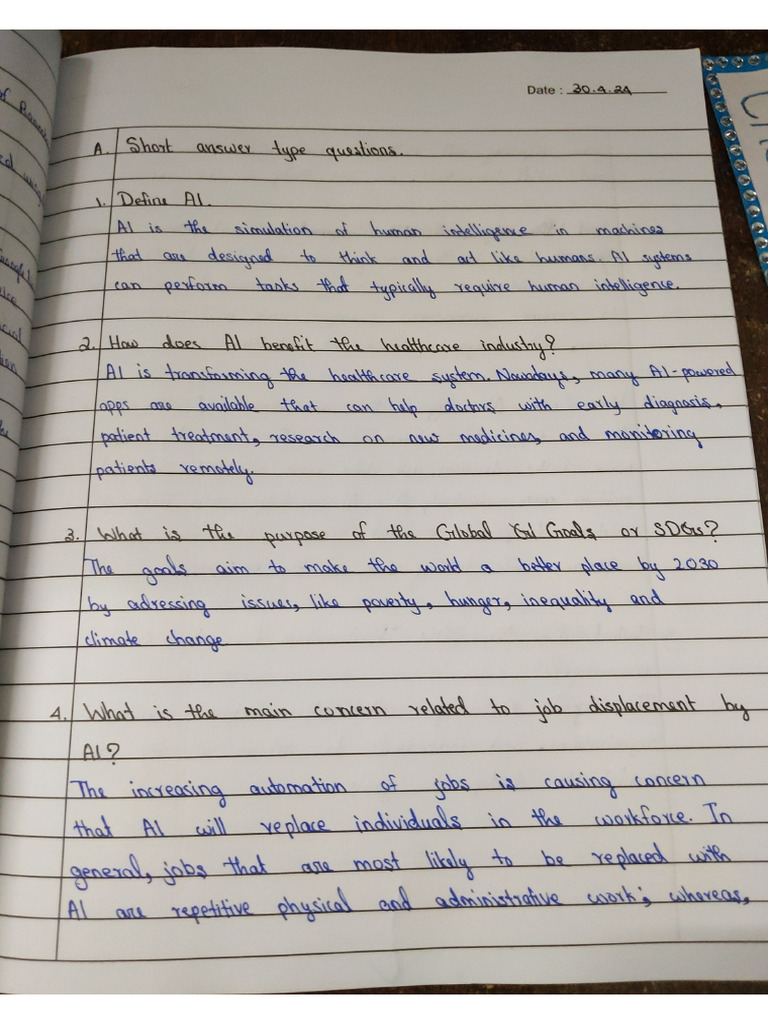 Date : 30.4.24
A. Short answer type questions.
1. Define AI.
AI is the simulation of human intelligence in machines
that are designed to think and act like humans. AI systems
can perform tasks that typically require human intelligence.
2. How does AI benefit the healthcare industry?
AI is transforming the healthcare system. Nowadays, many AI-powered
apps are available that can help doctors with early diagnosis,
patient treatment, research on new medicines, and monitoring
patients remotely.
3. What is the purpose of the Global Goals or SDGs?
The goals aim to make the world a better place by 2030
by adressing issues, like poverty, hunger, inequality and
climate change
4. What is the main concern related to job displacement by
AI?
The increasing automation of jobs is causing concern
that AI will replace individuals in the workforce. In
general, jobs that are most likely to be replaced with
AI are repetitive physical and administrative work; whereas,